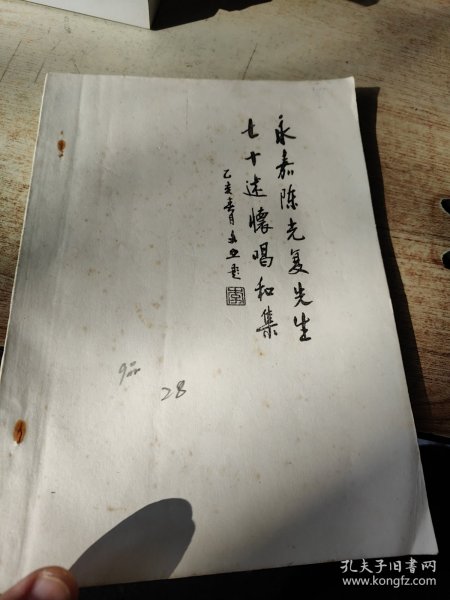 永嘉陈光复先生
七十述懷唱和集
乙亥春月
题
28
孔夫子旧书网
www.kongfz.com